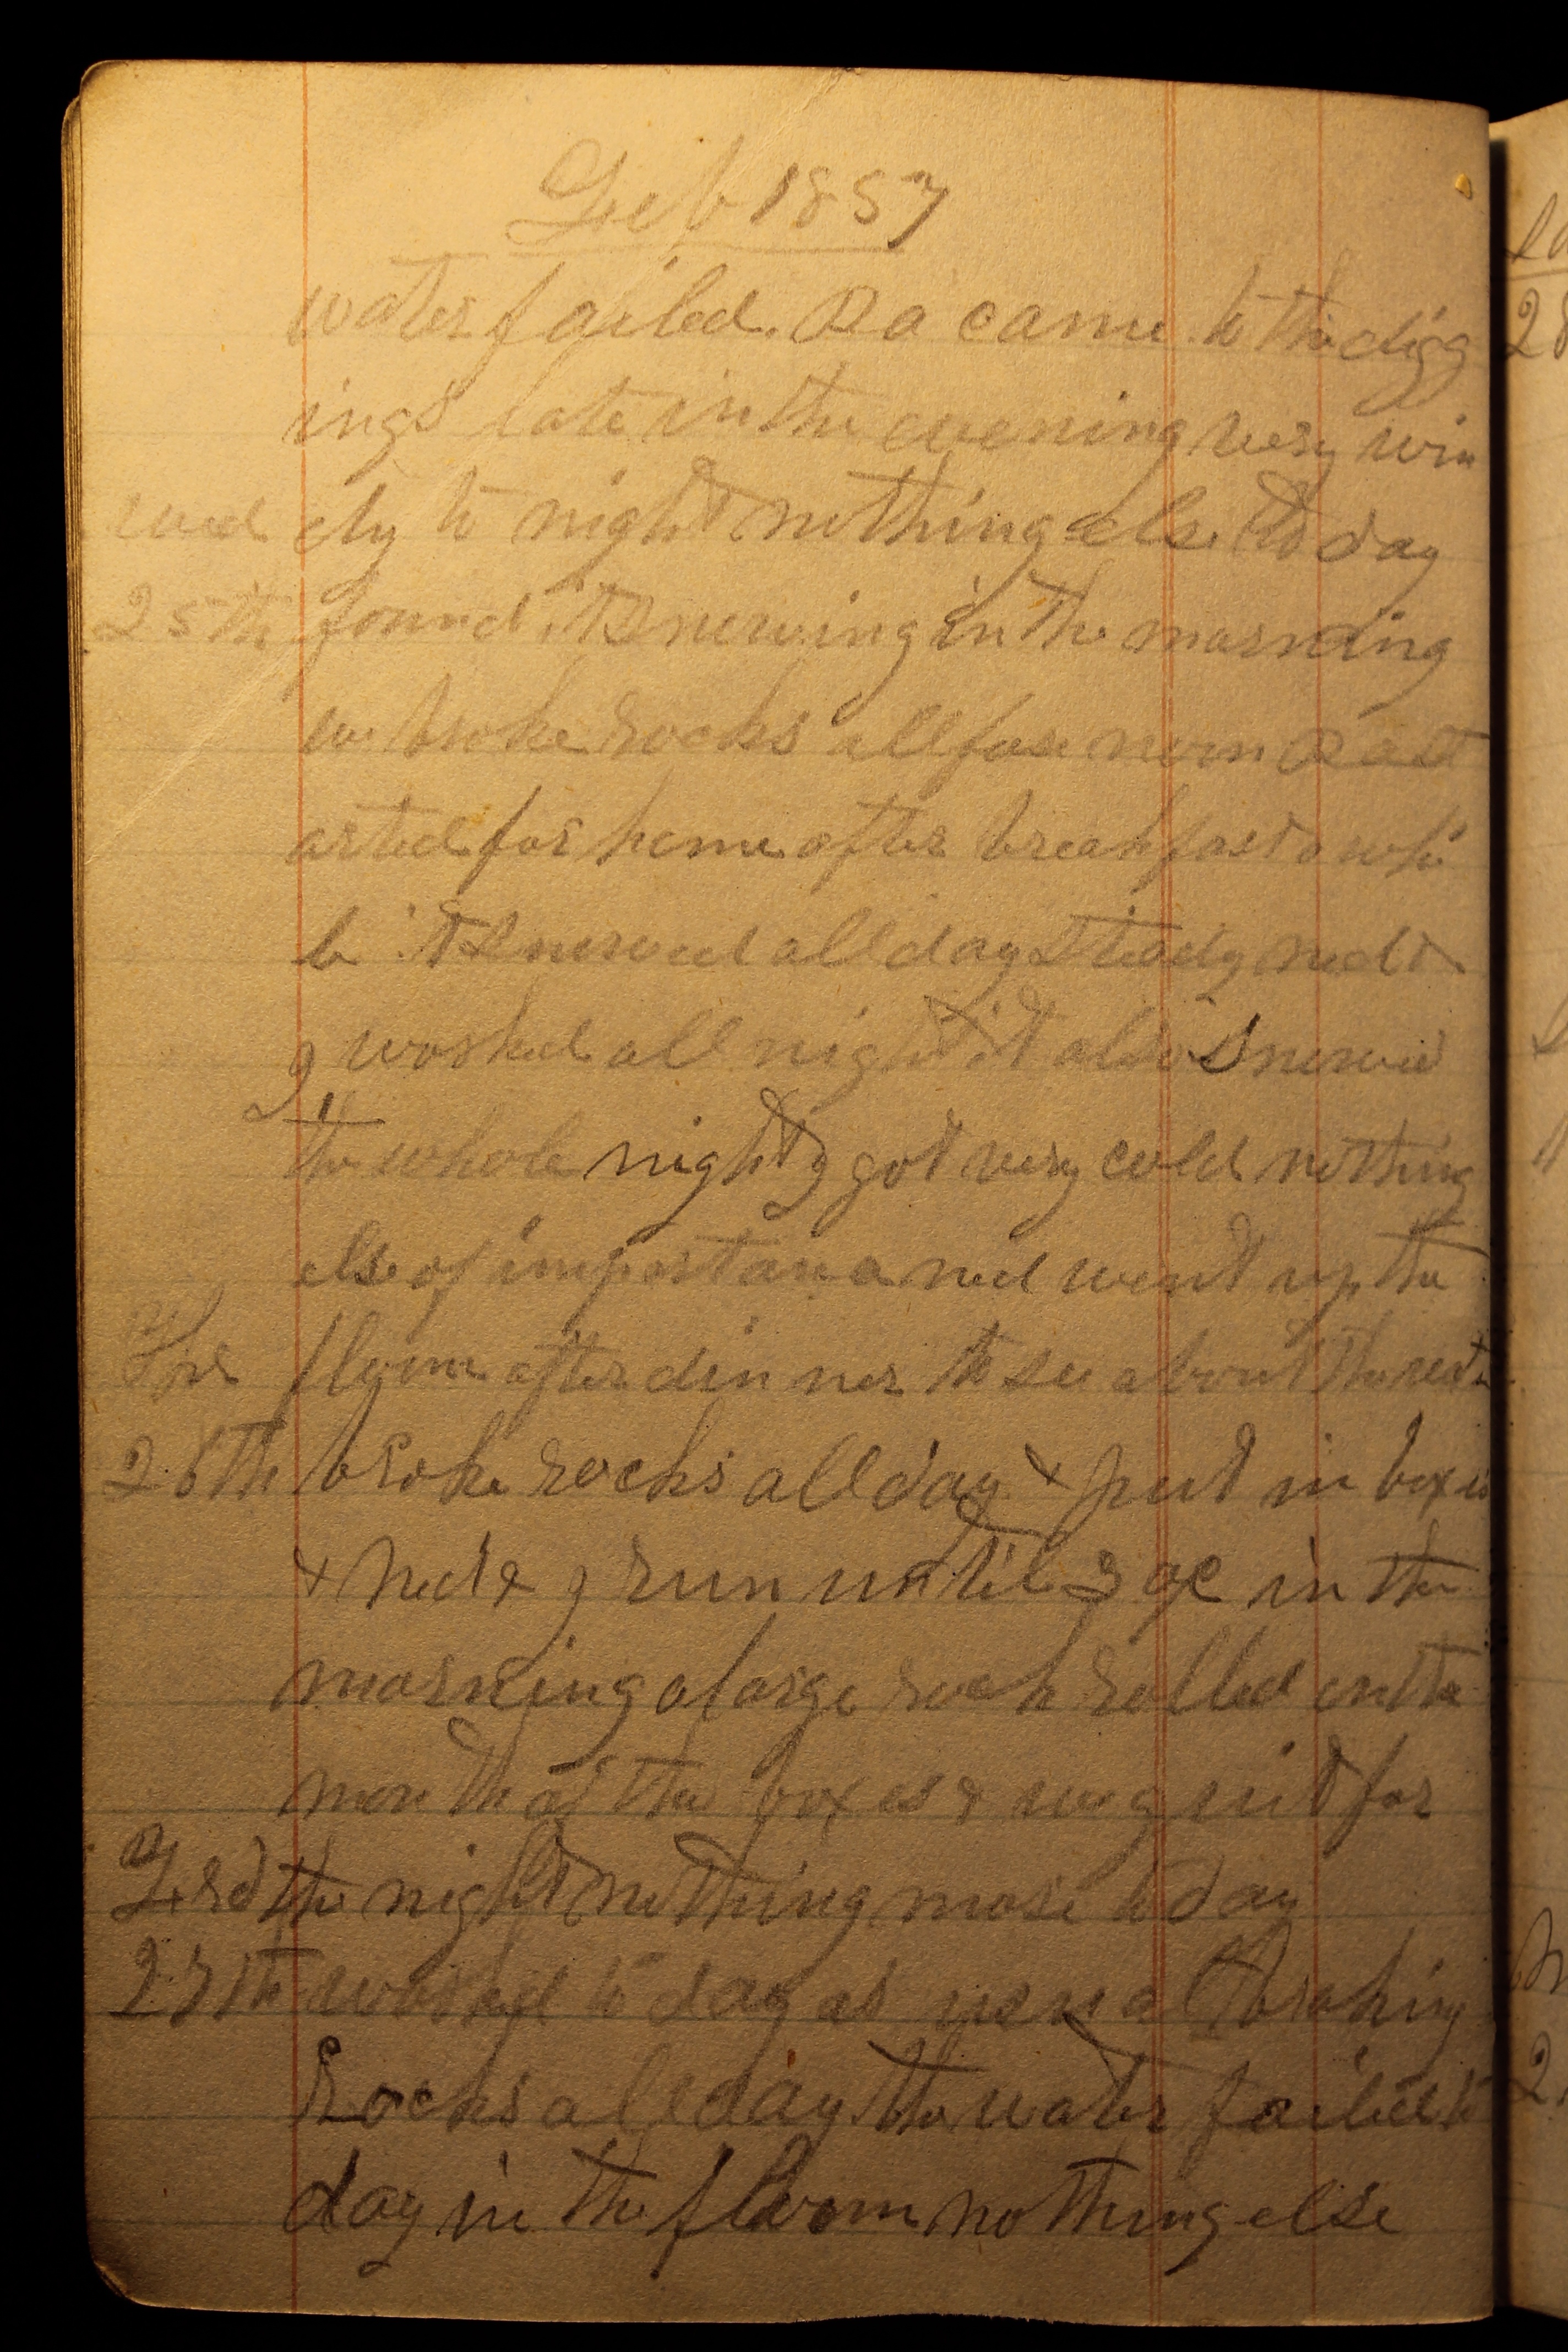 Feb 1857
water failed. Pa came to the digg
ings late in the evening very win
wed dy to night nothing else to day
25th found it Snowing in the morning
we broke rocks all fore noon Pa st
arted for home after breakfast whi
le it Snowed all day Steady ned &
I worked all night it also Snowed
the whole night I got very cold nothing
else of importance ned went up the
floom after dinner to see about the
26th broke rocks all day & put in boxes
& ned & I run until 3 oc in the
morning a large rock rolled in the
mouth of the boxes & we quit for
the night nothing more to day
27th worked to day as usual braking
Rocks all day the water failed to
day in the floom nothing else